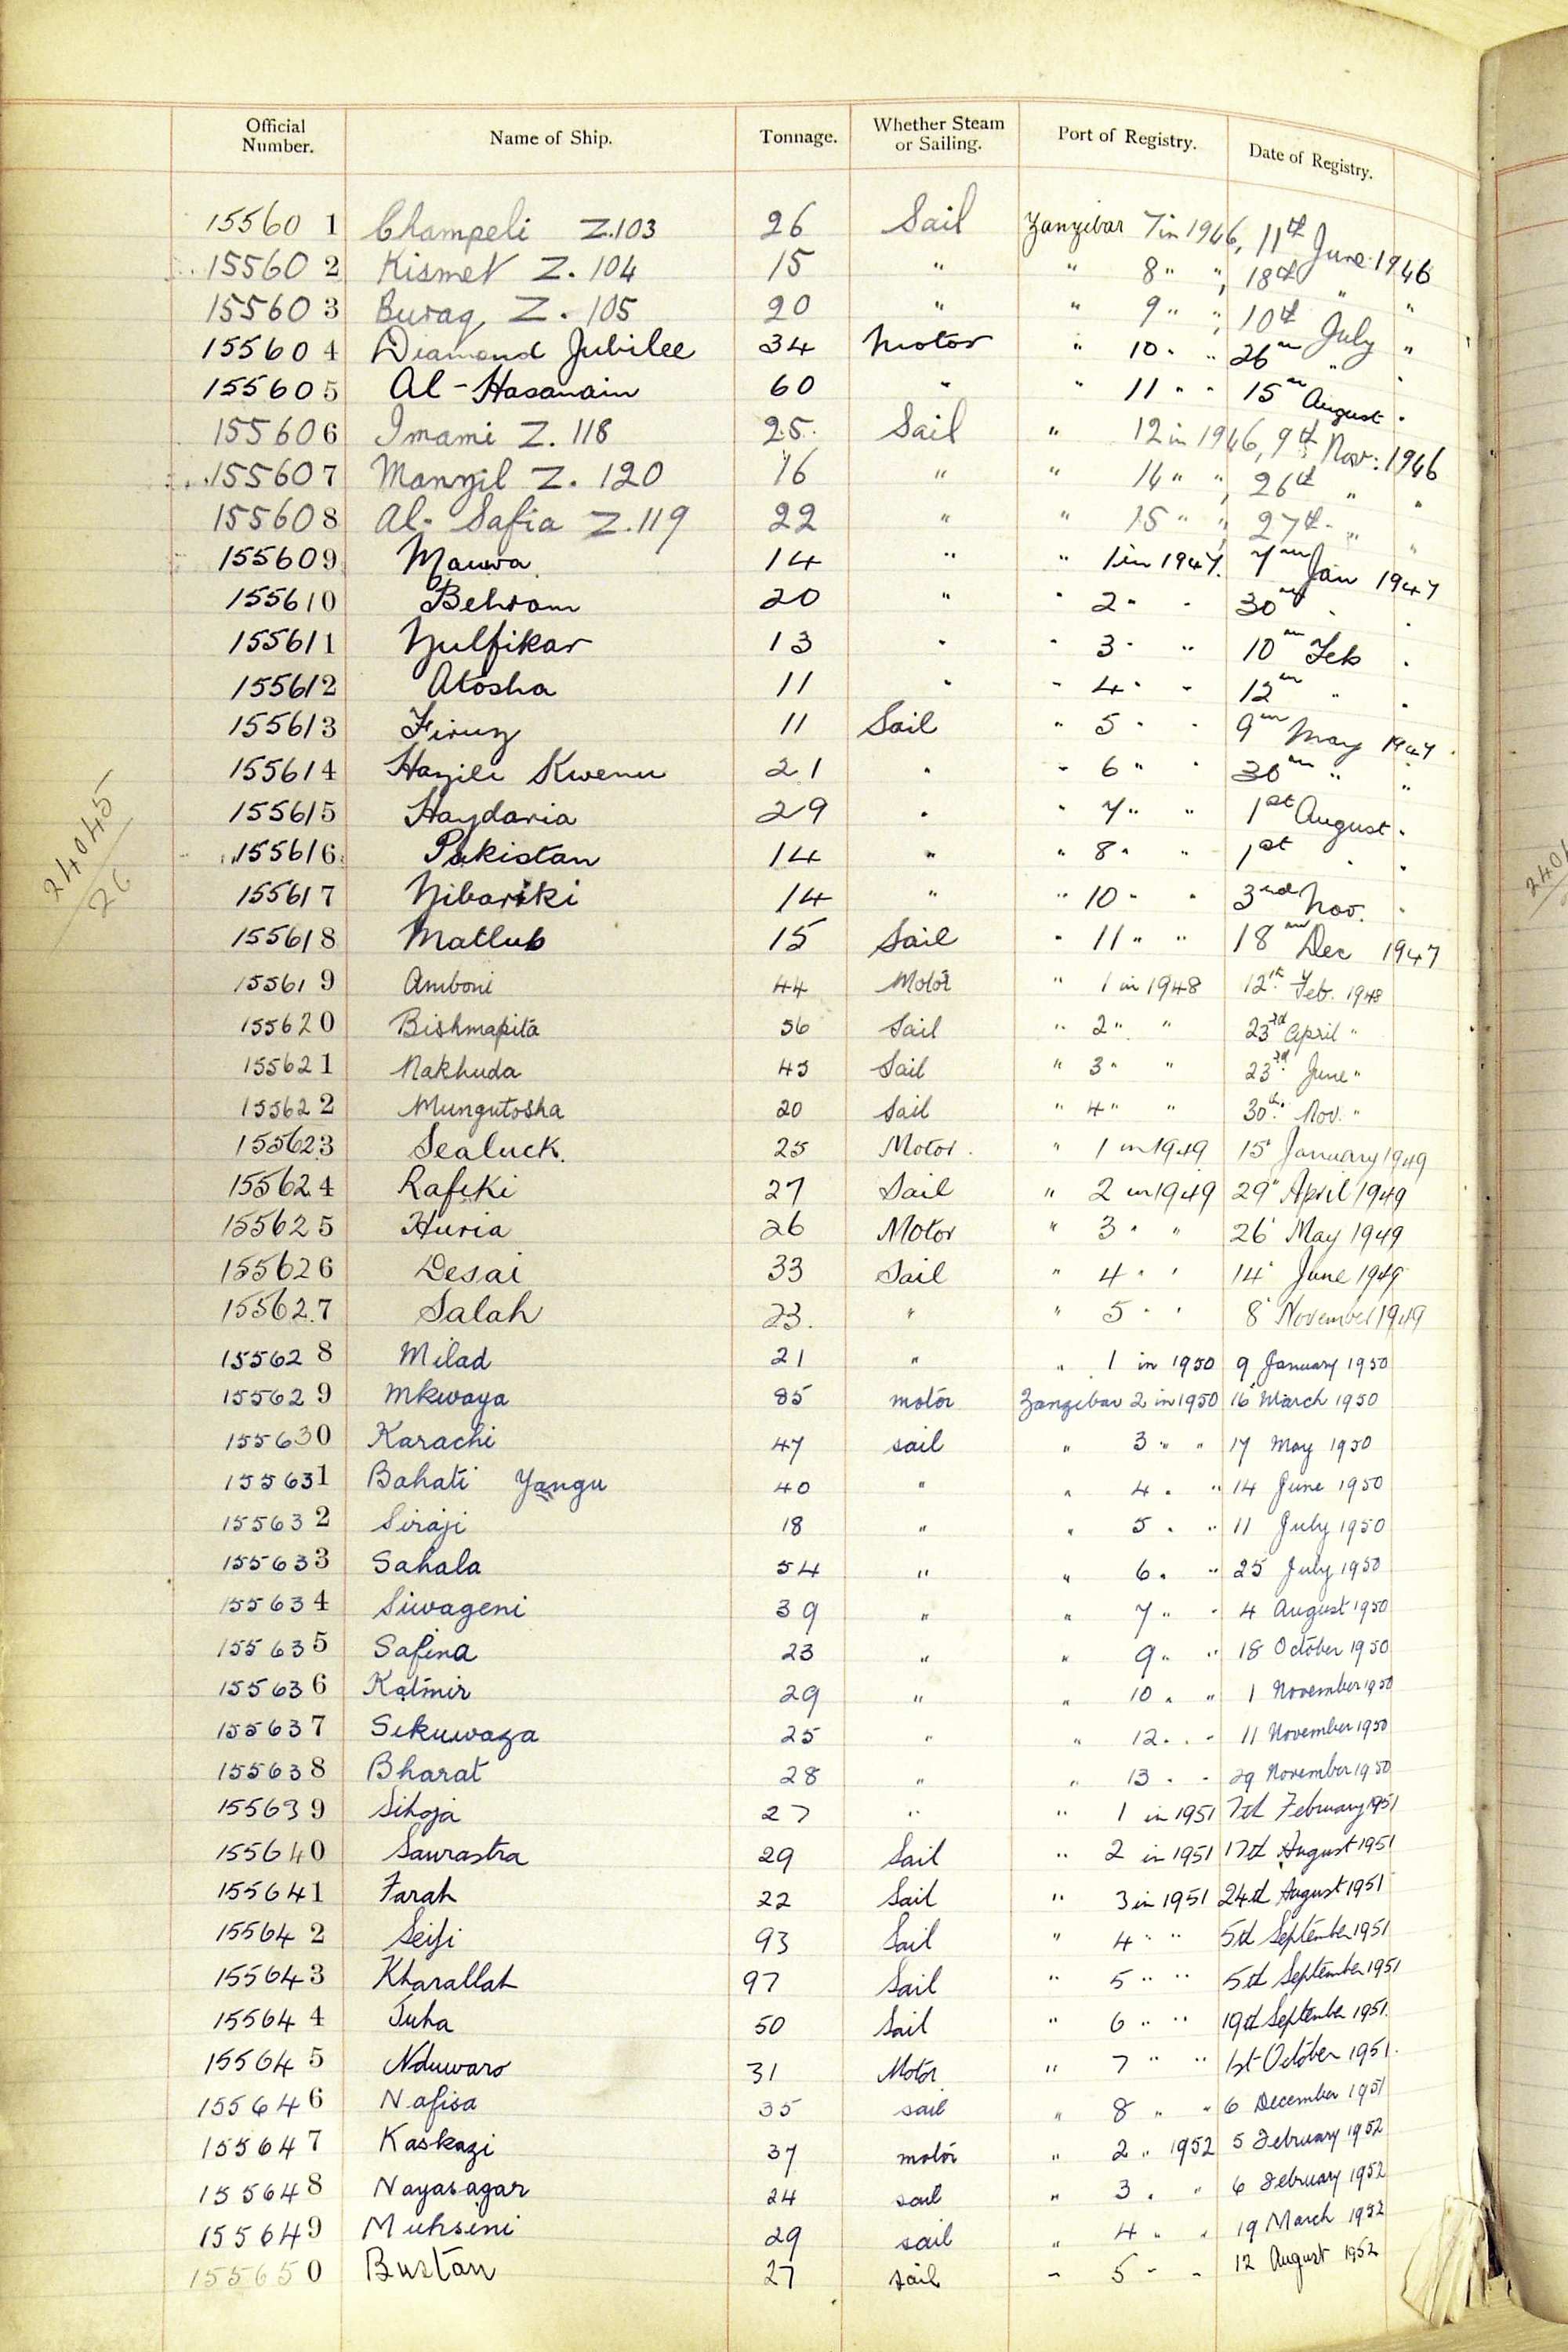 Official Number. Name of Ship. Tonnage. Whether Steam or Sailing. Port of Registry. Date of Registry.
155601 Champeli Z.103 26 Sail Zanzibar 7 in 1946, 11th June 1946
155602 Kismet Z. 104 15 " " 8 " " , 18th " "
155603 Buraq Z. 105 20 " " 9 " " , 10th July "
155604 Diamond Jubilee 34 Motor " 10 " " 26th " "
155605 Al-Hasanain 60 " " 11 " " 15th August "
155606 Imami Z. 118 25 Sail " 12 in 1946, 9th Nov: 1946
155607 Manzil Z. 120 16 " " 14 " " , 26th " "
155608 Al-Safia Z.119 22 " " 15 " " , 27th " "
155609 Mauwa 14 " " 1 in 1947. 7th Jan 1947
155610 Behram 20 " " 2 " " 30th " "
155611 Zulfikar 13 " " 3 " " 10th Feb "
155612 Atosha 11 " " 4 " " 12th " "
155613 Firuz 11 Sail " 5 " " 9th May 1947
155614 Hazile Kwenu 21 " " 6 " " 30th " "
155615 Haydaria 29 " " 7 " " 1st August "
155616 Pakistan 14 " " 8 " " 1st " "
155617 Zibariki 14 " " 10 " " 3rd Nov. "
155618 Matlub 15 Sail " 11 " " 18th Dec 1947
24045/26
155619 Amboni 44 Motor " 1 in 1948 12th Feb. 1948
155620 Bishmapita 56 Sail " 2 " " 23rd April "
155621 Nakhuda 45 Sail " 3 " " 23rd June "
155622 Mungutosha 20 Sail " 4 " " 30th Nov. "
155623 Sealuck. 25 Motor. " 1 in 1949 15 January 1949
155624 Rafiki 27 Sail " 2 in 1949 29 April 1949
155625 Huria 26 Motor " 3 " " 26 May 1949
155626 Desai 33 Sail " 4 " " 14 June 1949
155627 Salah 23. " " 5 " " 8 November 1949
155628 Milad 21 " " 1 in 1950 9 January 1950
155629 Mkwaya 85 motor Zanzibar 2 in 1950 16 March 1950
155630 Karachi 47 sail " 3 " " 17 May 1950
155631 Bahati Yangu 40 " " 4 " " 14 June 1950
155632 Siraji 18 " " 5 " " 11 July 1950
155633 Sahala 54 " " 6 " " 25 July 1950
155634 Siwageni 39 " " 7 " " 4 August 1950
155635 Safina 23 " " 9 " " 18 October 1950
155636 Katmir 29 " " 10 " " 1 November 1950
155637 Sikuwaza 25 " " 12 " " 11 November 1950
155638 Bharat 28 " " 13 " " 29 November 1950
155639 Sihoja 27 " " 1 in 1951 7th February 1951
155640 Saurastra 29 Sail " 2 in 1951 17th August 1951
155641 Farah 22 Sail " 3 in 1951 24th August 1951
155642 Seifi 93 Sail " 4 " " 5th September 1951
155643 Kharallah 97 Sail " 5 " " 5th September 1951
155644 Juha 50 Sail " 6 " " 19th September 1951
155645 Nduwaro 31 Motor " 7 " " 1st October 1951
155646 Nafisa 35 sail " 8 " " 6 December 1951
155647 Kaskazi 37 motor " 2 " 1952 5 February 1952
155648 Nayasagar 24 sail " 3 " " 6 February 1952
155649 Muhsini 29 sail " 4 " " 19 March 1952
155650 Bustan 27 sail " 5 " " 12 August 1952